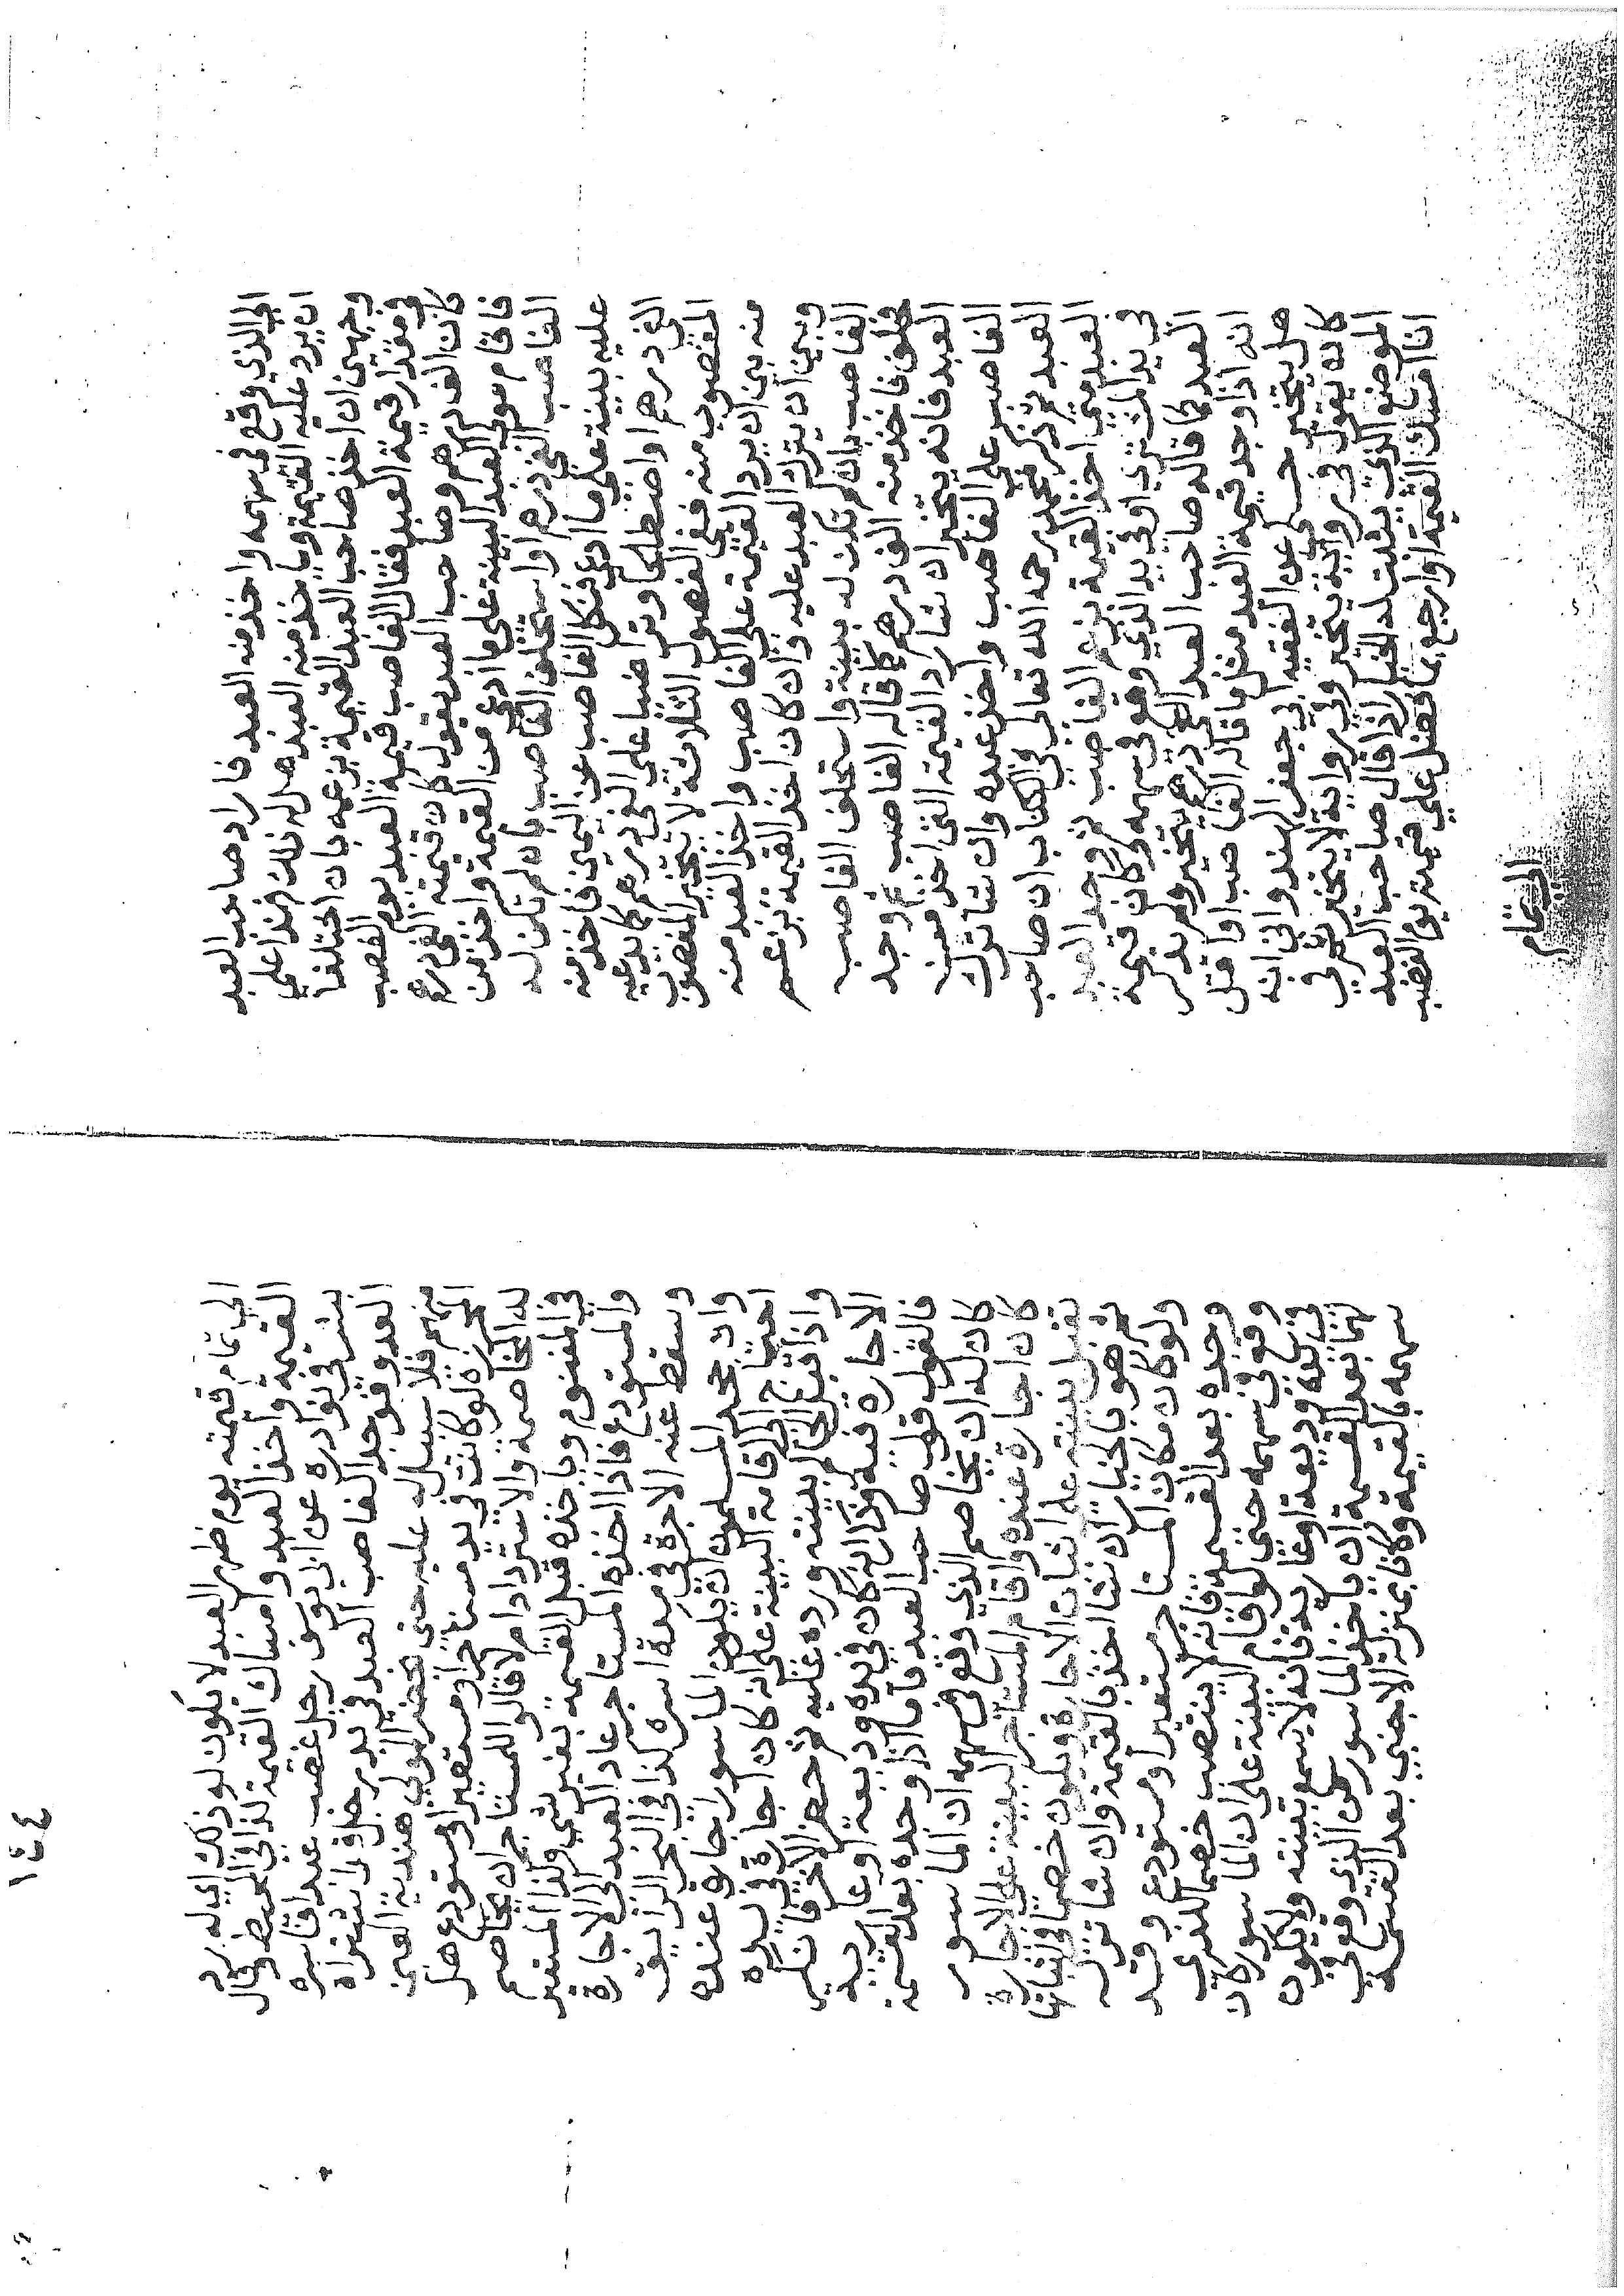 الي الذي وقع في سهمه واخذ منه العبد فاراد صاحب العبد
ان يرد عليه القيمة وياخذ منه العبد هل له ذلك فهذا علي
وجهين ان اخذ صاحب العبد القيمة بزعمه بان اختلفا
في مقدار قيمة العبد فقال الغاصب قيمة العبد يوم الغصب
كان الف درهم وصاحب العبد يقول كان قيمته الفي درهم
فاقام مولي العبد البينة علي ما ادعي من القيمة واخذ من
الغاصب الفي درهم او استحلف الغاصب بان لم تكن له
عليه بينة علي ما ادعي فنكل الغاصب عن اليمين فاخذ منه
الفي درهم او اصطلحا وتراضيا علي الفي درهم كما يدعيه
المغصوب منه ففي الفصول الثلاثة لا يتخير المغصوب
منه بين ان يرد القيمة علي الغاصب واخذ العبد منه
وبين ان يترك العبد عليه وان كان اخذ القيمة بزعم
الغاصب بان لم تكن له بينة واستحلف الغاصب
فحلف فاخذ منه الف درهم كما قاله الغاصب ثم وجد
العبد فانه يتخير ان شاء رد القيمة التي اخذ من
الغاصب علي الغاصب واخذ عبده وان شاء ترك
العبد ثم ذكر محمد رحمه الله تعالي في الكتاب ان صاحب
العبد متي اخذ القيمة بزعم الغاصب ثم وجد العبد
في يد المشتري او في يد الذي وقع في سهمه وكان قيمة
العبد كما قاله صاحب العبد الفي درهم يتخير ولم يذكر
انه اذا وجد قيمة العبد مثل ما قاله الغاصب او اقل
هل يتخير حكي عن الفقيه ابي جعفر الهندواني انه
كان يقول في رواية يتخير وفي رواية لا يتخير ثم في
الموضع الذي يثبت له الخيار اذا قال صاحب العبد
انا امسك القيمة وارجع بما فضل علي قيمته يوم الغصب
الي تمام
١٤٤
الي تمام قيمته يوم ظهر العبد لا يكون له ذلك انما له رد
القيمة واخذ العبد وامساك القيمة كذا في المحيط وقال
بشر في نوادره عن ابي يوسف رجل غصب عبدا فاسره
العدو فوجد الغاصب العبد في يد رجل قد اشتراه
منهم فلا سبيل له عليه حتي يحضر المولي هندية العين
المحرزة لو كانت في يد مستاجر او مستعير او مستودع هل
له المخاصمة والاسترداد ام لا قالوا للمستاجر ان يخاصم
في المغنوم وياخذه قبل القسمة بغير شي وكذا المستعير
والمستودع فاذا اخذه المستاجر عاد العبد الي الاجارة
وسقط عنه الاجرة في مدة اسره كذا في البحر الرايق
وان جحد المسلمون ان يكون الماسور اجارة عنده
احتاج الي اقامة البينة علي انه كان اجارة في يده
واذا قبل الحاكم بينته ورده عليه ثم حضر الاخر فانكر
الاجارة فيه وقال انه كان في يده وديعة او عارية
فالقول قول صاحب العبد فاما اذا وجده بعد القسمة
كان له ان يخاصم الذي وقع في سهمه ان الماسور
كان اجارة عنده واقام المستاجر البينة علي الاجارة
تقبل بينته علي اثبات الاجارة ويكون خصما في اثباتها
ثم هو بالخيار ان شا اخذ بالقيمة وان شا ترك
ولو كان مكان المستاجر مستعيرا او مستودع وقد
وجده بعد القسمة فانه لا ينتصب خصما للذي
وقع في سهمه حتي لو اقام البينة علي ان الماسور كان
في يده وديعة او عارية فانه لا يسمع بينته ولا يكون
لهما بعد القسمة ان ياخذ الماسور من الذي وقع في
سهمه بالقيمة وكانا بمنزلة الاجنبي بعد القسمة